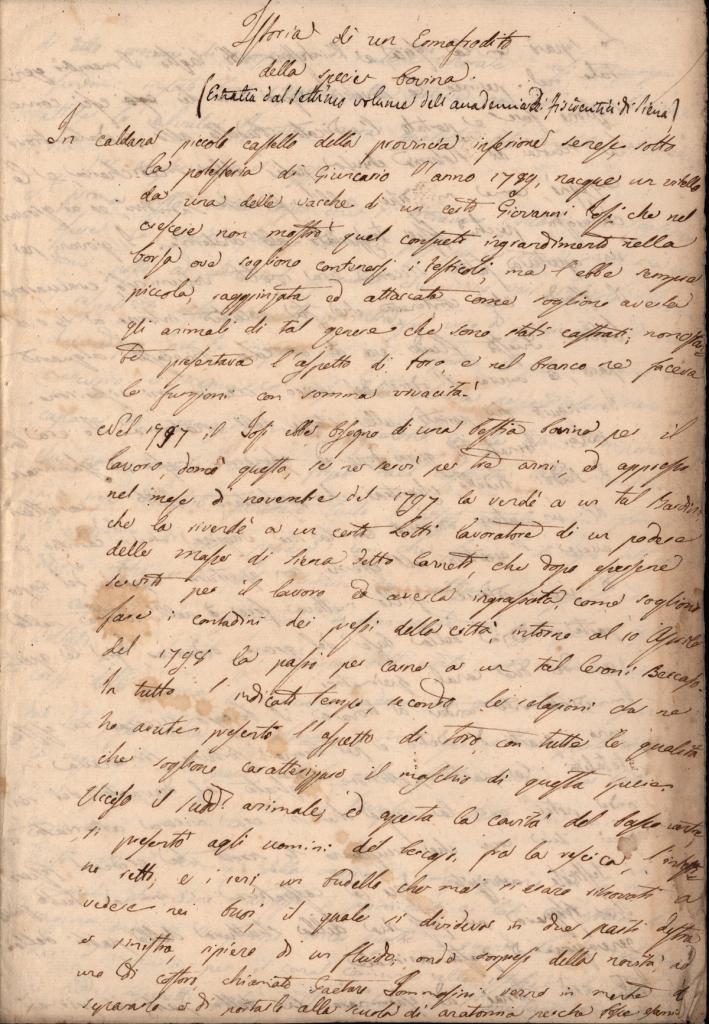 Istoria di un Ermafrodito
della specie bovina.
(Estratta dal settimo volume dell'accademia de' fisiocritici di Siena)
In Caldana piccolo castello della provincia inferiore senese sotto
la potesteria di Giuncarico l'anno 17, nacque un vitello
da una delle vacche di un certo Giovanni che nel
crescere non mostrò quel consueto ingrandimento nella
borsa ove sogliono contenersi i testicoli, ma l'ebbe sempre
piccola, raggrinzata ed attaccata come sogliono averla
gli animali di tal genere che sono stati castrati; non
presentava l'aspetto di toro, e nel branco ne faceva
le funzioni con somma vivacità.
Nel 17 il ebbe bisogno di una bestia bovina per il
lavoro, domò questa, se ne servì per tre anni, ed appresso
nel mese di novembre del 1797 la vendé a un tal
che la rivendé a un certo Lotti lavoratore di un podere
delle masse di Siena detto, che dopo essersene
servito per il lavoro ed averla ingrassata, come sogliono
fare i contadini dei pressi della città, intorno al 10 Aprile
del 1798 la passò per carne a un tal Ceroni
In tutto l'indicato tempo, secondo le relazioni che ne
ho avute presentò l'aspetto di toro con tutte le qualità
che sogliono caratterizzare il maschio di questa specie.
Ucciso il sudd.° animale, ed aperta la cavità del basso ventre,
si presentò agli uomini del, fra la vescica, l'
no retto, e i reni, un budello che mai si erano ritrovati a
vedere nei buoi, il quale si divideva in due parti destra
e sinistra, ripiene di un fluido, onde sorpresi della novità, ad
uno di costoro, chiamato Gaetano venne in mente di
separarlo e di portarlo alla scuola di anatomia perché fosse